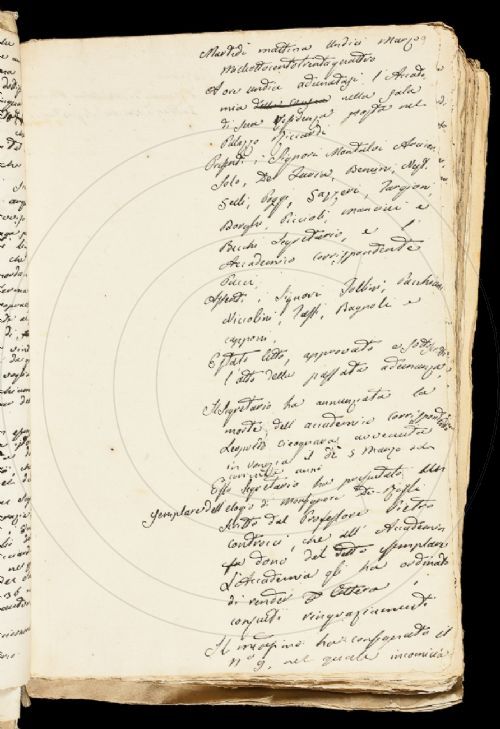 Martedì mattina undici Marzo
milleottocentotrentaquattro
A ore undici adunatasi l'Accade
mia nella sala
di sua residenza posta nel
Palazzo Riccardi
Presenti i Signori Montalvi Arcicon
solo, Del Furia, Bencini, Nesti
Selli, Poggi, Sazzeri, Targioni,
Borghi, Piccioli, Mancini e
Becchi Segretario, e l'
Accademico corrispondente
Pucci.
Assenti i Signori Follini, Zannoni
Niccolini, Tassi, Bagnoli e
Capponi.
È stato letto, approvato e
l'atto della passata adunanza
Il Segretario ha annunziata la
morte dell'accademico corrispondente
Leopoldo Cicognara avvenuta
in Venezia il dì 5 Marzo del
corrente anno
Esso Segretario ha presentato
Esemplare dell'elogio di Monsignore De
scritto dal Professore Pietro
Contrucci, che all'Accademia
fa dono del detto esemplare
L'Accademia gli ha ordinato
di render Lettera i
consueti ringraziamenti
Il medesimo ha consegnato il
n° 9, nel quale incomincia